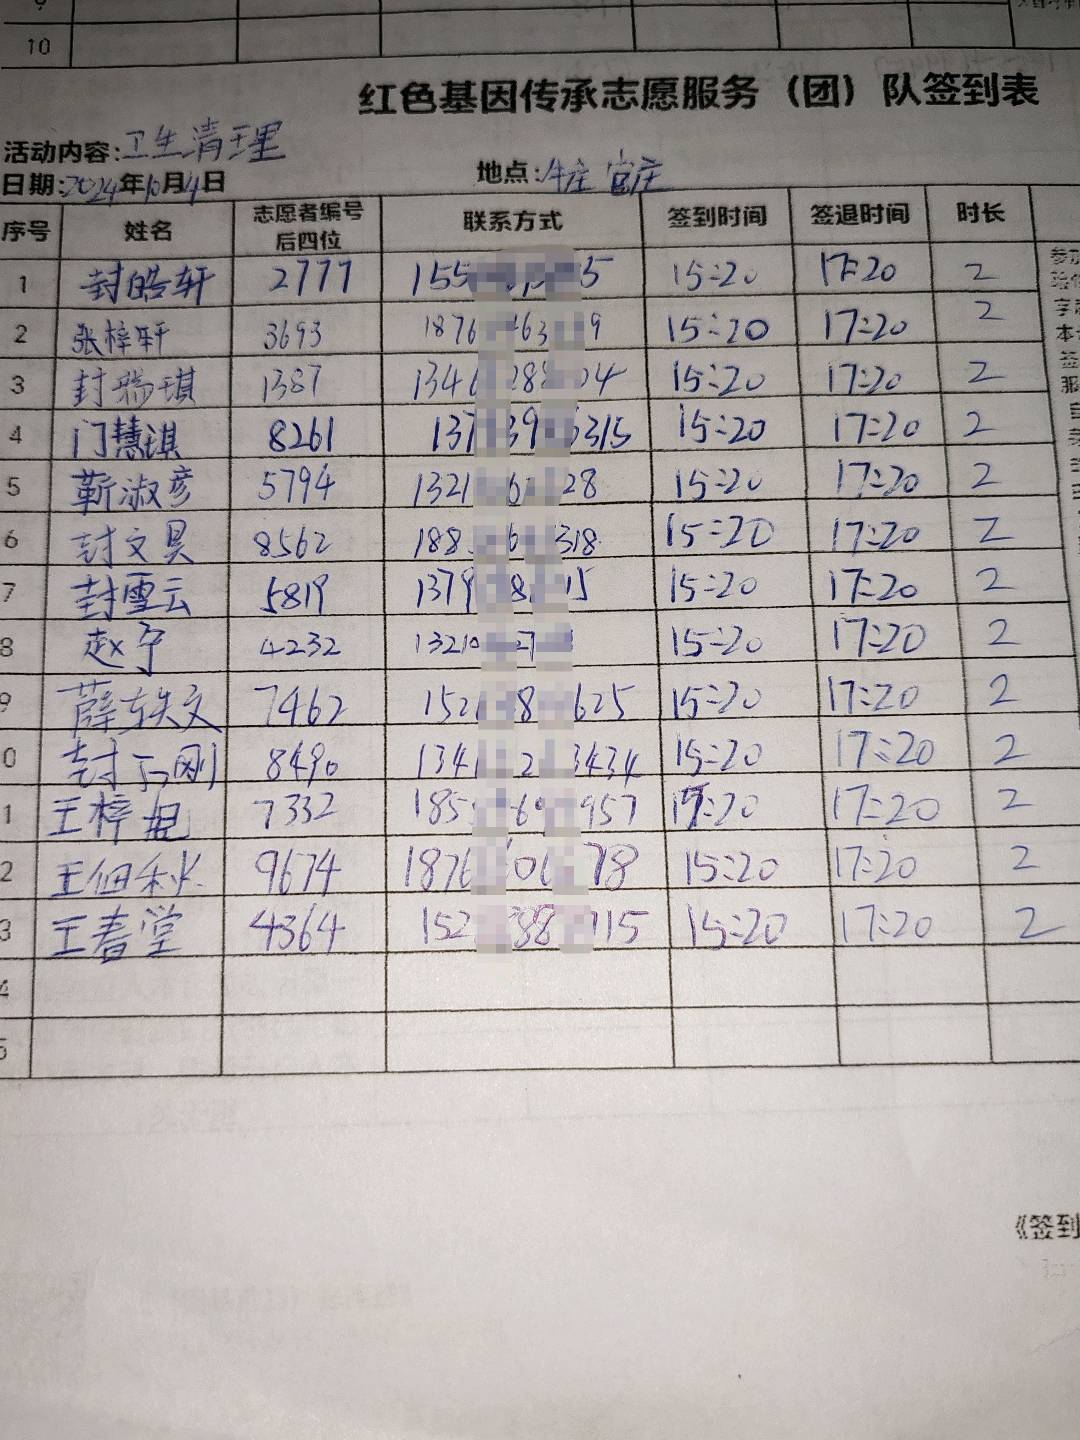 10
红色基因传承志愿服务（团）队签到表
活动内容:卫生清理
日期:2024年10月4日 地点:牛庄 官庄
序号 姓名 志愿者编号后四位 联系方式 签到时间 签退时间 时长
1 封皓轩 2777 155 5 15:20 17:20 2
2 张梓轩 3693 1876 63 9 15:20 17:20 2
3 封瑞琪 1387 134 28 04 15:20 17:20 2
4 门慧琪 8261 137 39 315 15:20 17:20 2
5 靳淑彦 5794 1321 6 28 15:20 17:20 2
6 封文具 8562 188 6 318 15:20 17:20 2
7 封雪云 5819 1379 8 15 15:20 17:20 2
8 赵宁 4232 1321 27 15:20 17:20 2
9 薛轶文 7462 152 8 625 15:20 17:20 2
0 封 刚 8490 134 2 3434 15:20 17:20 2
1 王梓 7332 185 6 957 17:20 2
2 王 秋 9674 1876 06 78 15:20 17:20 2
3 王春堂 4364 152 88 115 15:20 17:20 2
4
5
《签到